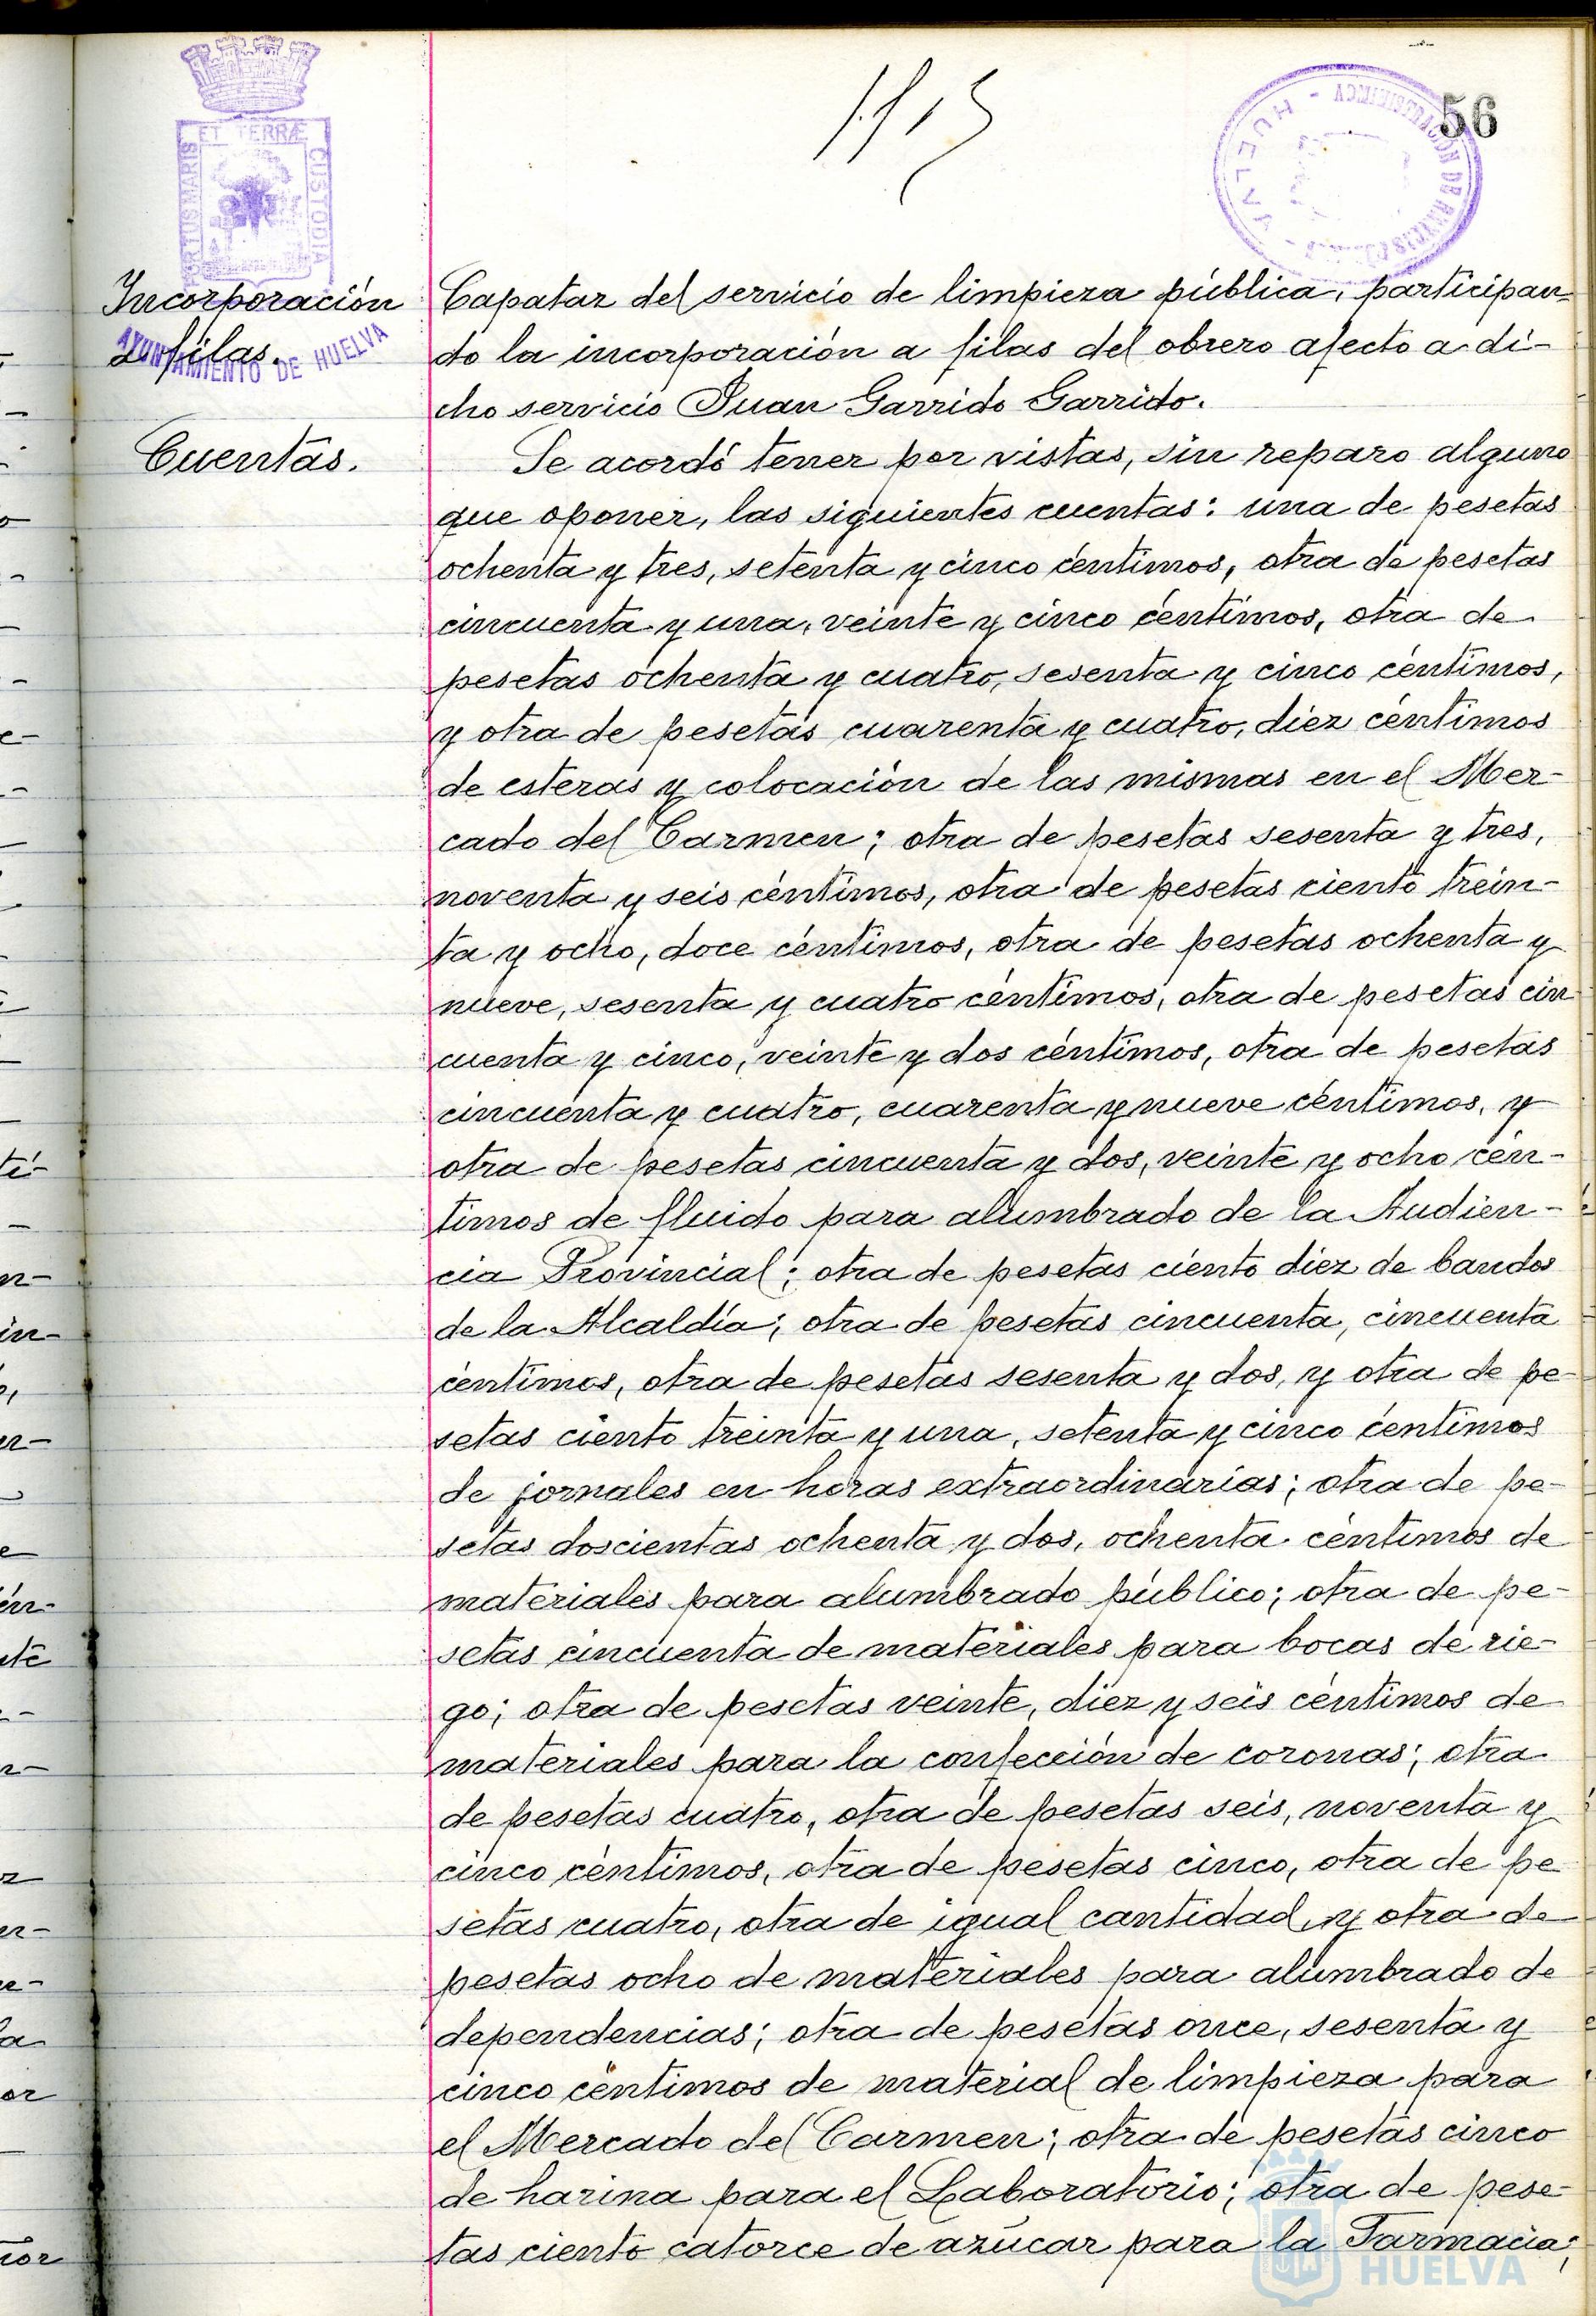 56
ET TERRÆ
PORTUS MARIS
CUSTODIA
HUELVA
Incorporación
a filas.
AYUNTAMIENTO DE HUELVA
Capataz del servicio de limpieza pública, participan-
do la incorporación a filas del obrero afecto a di-
cho servicio Juan Garrido Garrido.
Cuentas.
Se acordó tener por vistas, sin reparo alguno
que oponer, las siguientes cuentas: una de pesetas
ochenta y tres, setenta y cinco céntimos, otra de pesetas
cincuenta y una, veinte y cinco céntimos, otra de
pesetas ochenta y cuatro, sesenta y cinco céntimos,
y otra de pesetas cuarenta y cuatro, diez céntimos
de esteras y colocación de las mismas en el Mer-
cado del Carmen; otra de pesetas sesenta y tres,
noventa y seis céntimos, otra de pesetas ciento trein-
ta y ocho, doce céntimos, otra de pesetas ochenta y
nueve, sesenta y cuatro céntimos, otra de pesetas cin
cuenta y cinco, veinte y dos céntimos, otra de pesetas
cincuenta y cuatro, cuarenta y nueve céntimos, y
otra de pesetas cincuenta y dos, veinte y ocho cén-
timos de fluido para alumbrado de la Audien-
cia Provincial; otra de pesetas ciento diez de bandos
de la Alcaldía; otra de pesetas cincuenta, cincuenta
céntimos, otra de pesetas sesenta y dos, y otra de pe-
setas ciento treinta y una, setenta y cinco céntimos
de jornales en horas extraordinarias; otra de pe-
setas doscientas ochenta y dos, ochenta céntimos de
materiales para alumbrado público; otra de pe-
setas cincuenta de materiales para bocas de rie-
go; otra de pesetas veinte, diez y seis céntimos de
materiales para la confección de coronas; otra
de pesetas cuatro, otra de pesetas seis, noventa y
cinco céntimos, otra de pesetas cinco, otra de pe
setas cuatro, otra de igual cantidad, y otra de
pesetas ocho de materiales para alumbrado de
dependencias; otra de pesetas once, sesenta y
cinco céntimos de material de limpieza para
el Mercado del Carmen; otra de pesetas cinco
de harina para el Laboratorio; otra de pese-
tas ciento catorce de azúcar para la Farmacia;
HUELVA